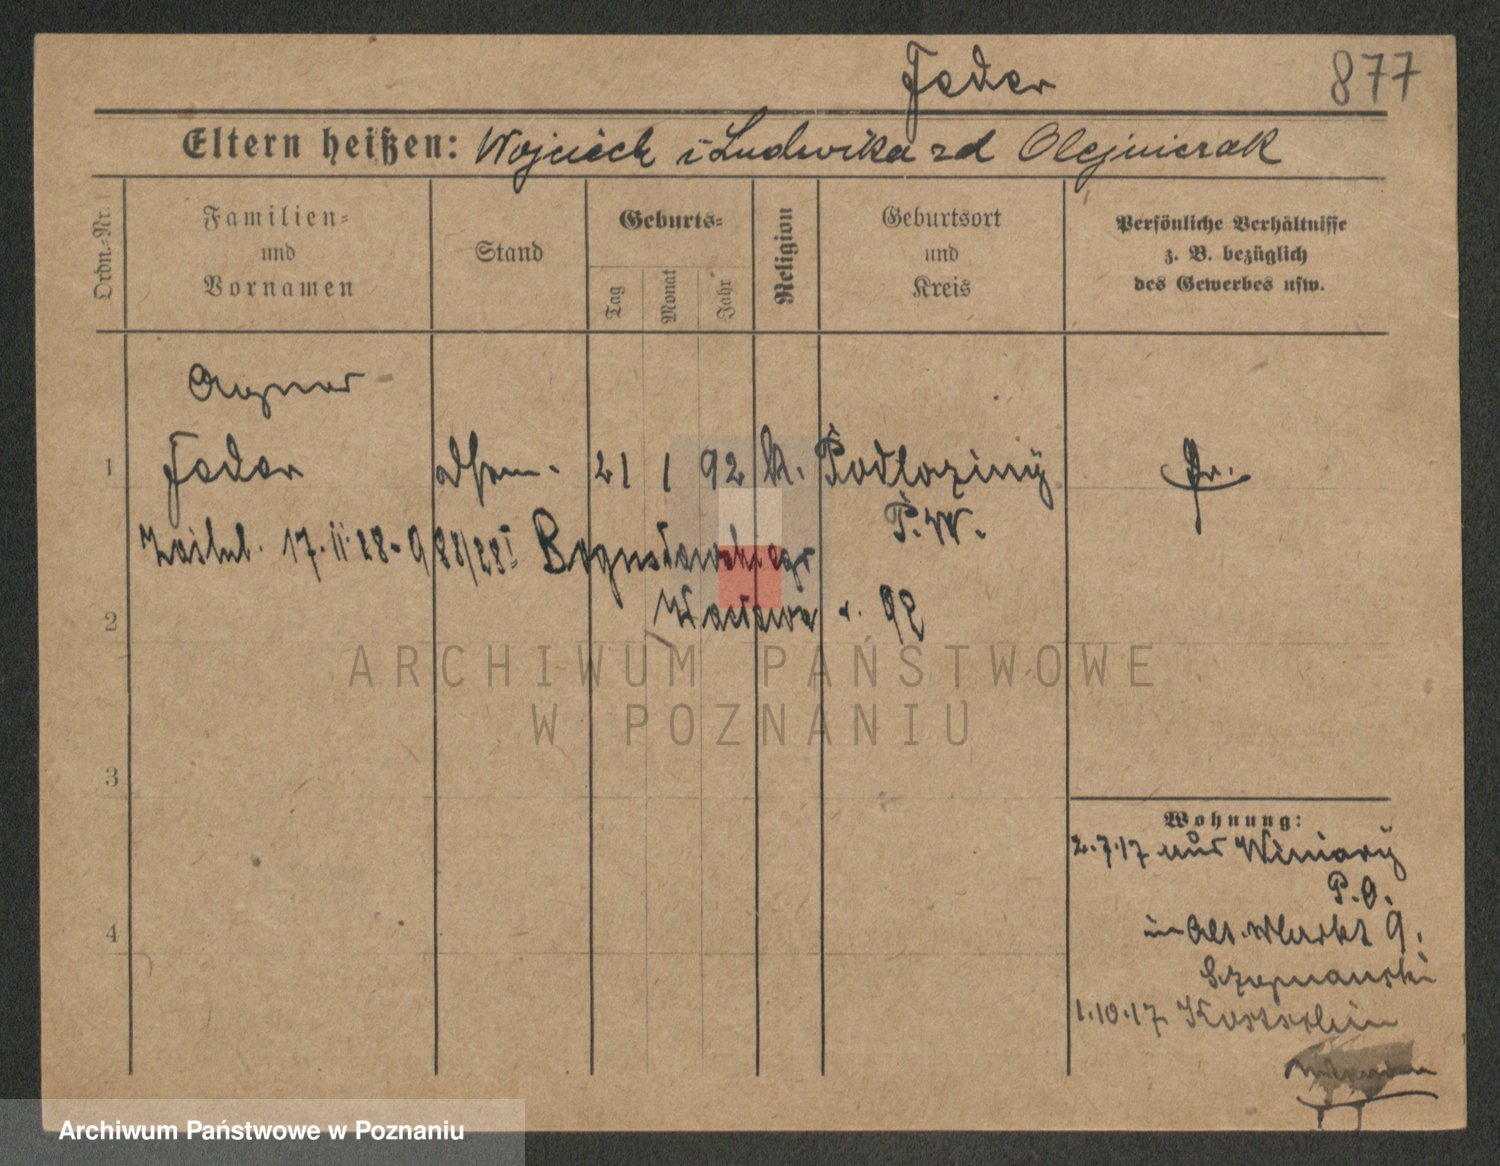 Feder
877
Eltern heißen: Wojciech i Ludwika zd Olejniczak
Ordn.-Nr.
Familien-
und
Vornamen
Stand
Geburts-
Tag
Monat
Jahr
Religion
Geburtsort
und
Kreis
Persönliche Verhältnisse
z. B. bezüglich
des Gewerbes usw.
1
Feder
21 1 92 k.
Podlaziny
Pr.
P.W.
17.II.28 - 988/28
2
Wacława r. 92
3
4
Wohnung:
2.7.17 aus Winiary
P.O.
in Alt. Markt 9.
Szczepanski
1.10.17
ARCHIWUM PAŃSTWOWE
W POZNANIU
Archiwum Państwowe w Poznaniu